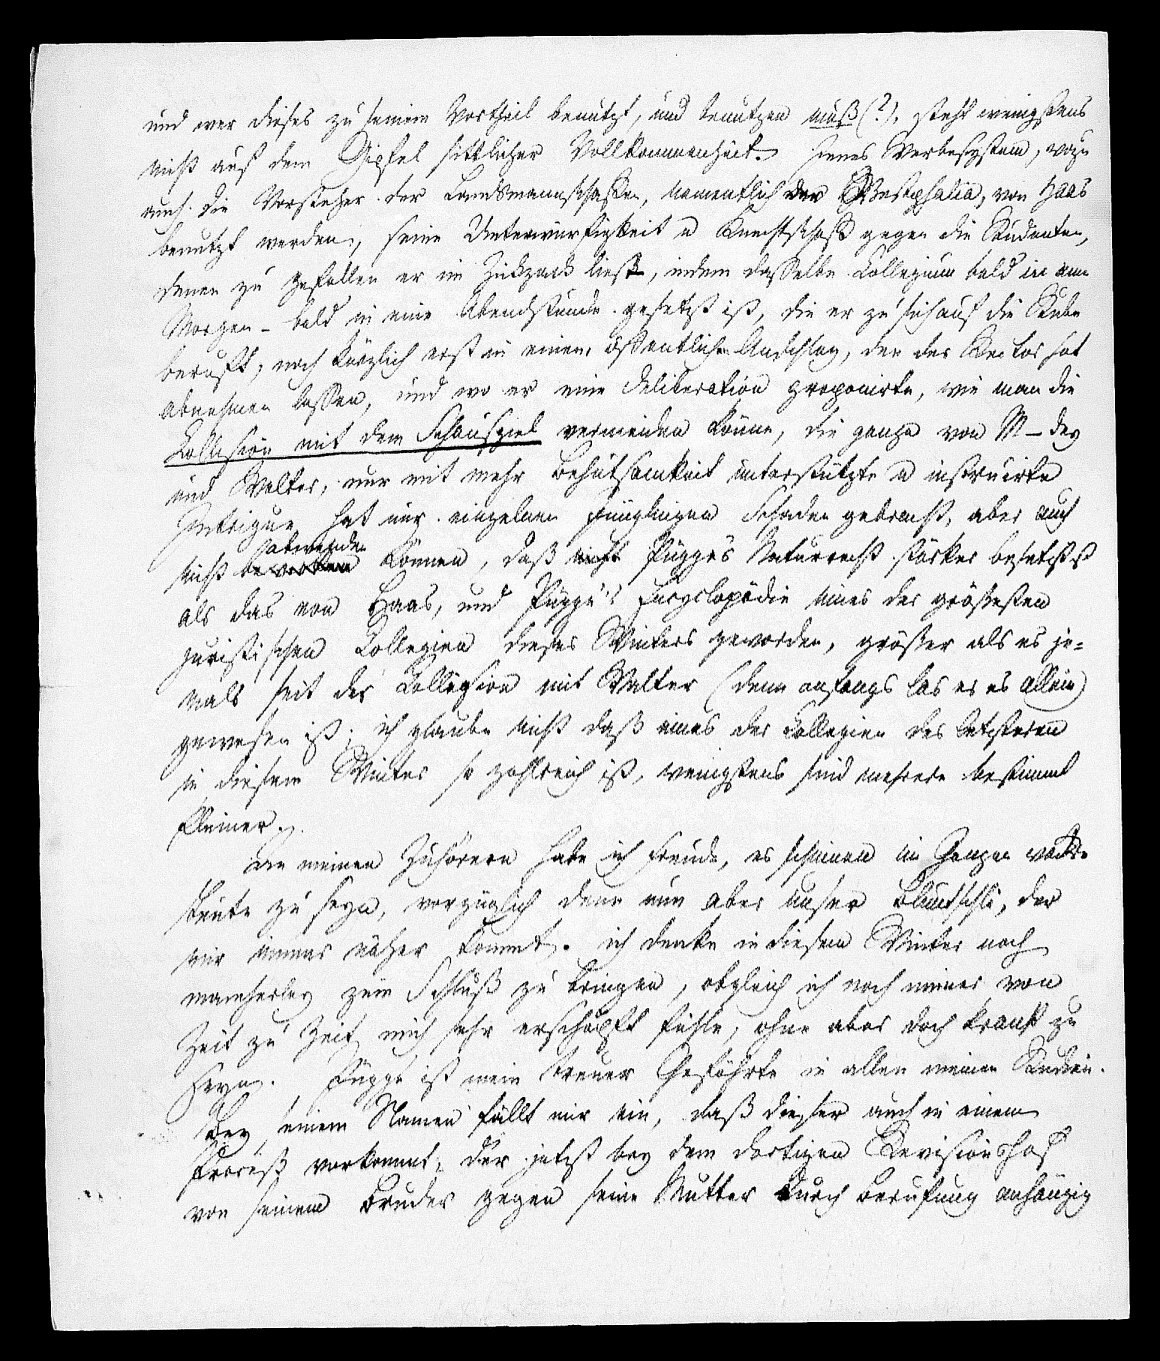 und wer dieses zu seinem Vortheil benutzt, und benutzen muß(?), steht wenigstens
nicht auf dem Gipfel sittlicher Vollkommenheit. Jenes Werbesystem, wozu
auch die Vorsteher der Landsmannschaften, namentlich der Westphalia, von Haas
benutzt werden, seine Unterwürfigkeit u Knechtschaft gegen die Studenten,
denen zu gefallen er im Zickzack liest, indem dasselbe Collegium bald in eine
Morgen – bald in eine Abendstunde gesetzt ist, die er zu sich auf die Stube
beruft, noch kürzlich erst in einem öffentlichen Anschlag, den der Rector hat
abnehmen lassen, und wo er eine Deliberation proponirte, wie man die
Collision mit dem Schauspiel vermeiden könne, die ganze von M–dey
und Walter, nur mit mehr Behutsamkeit unterstützte u instruirte
Intrigue hat nur einzelnen Jünglingen Schaden gebracht, aber auch
nicht abwenden können, daß Pügge's Naturrecht stärker besetzt ist
als das von Haas, und Pügge's Encyclopädie eines der größesten
juristischen Collegien dieses Winters geworden, grösser als es je-
mals seit der Collision mit Walter (denn anfangs las er es allein)
gewesen ist; ich glaube nicht daß eines der Collegien des letzteren
in diesem Winter so zahlreich ist, wenigstens sind mehrere bestimmt
kleiner.
An meinen Zuhörern habe ich Freude, es scheinen im Ganzen wackre
Leute zu seyn, vorzüglich denn nun aber unser Bluntschli, der
mir immer näher kommt. ich denke in diesem Winter noch
mancherley zum Schluß zu bringen, obgleich ich noch immer von
Zeit zu Zeit mich sehr erschöpft fühle, ohne aber doch krank zu
seyn. Pügge ist mein treuer Gefährte in allen meinen Studien.
Bey seinem Namen fällt mir ein, daß dieser auch in einem
Proceß vorkommt, der jetzt bey dem dortigen Revisionshof
von seinem Bruder gegen seine Mutter durch Berufung anhängig